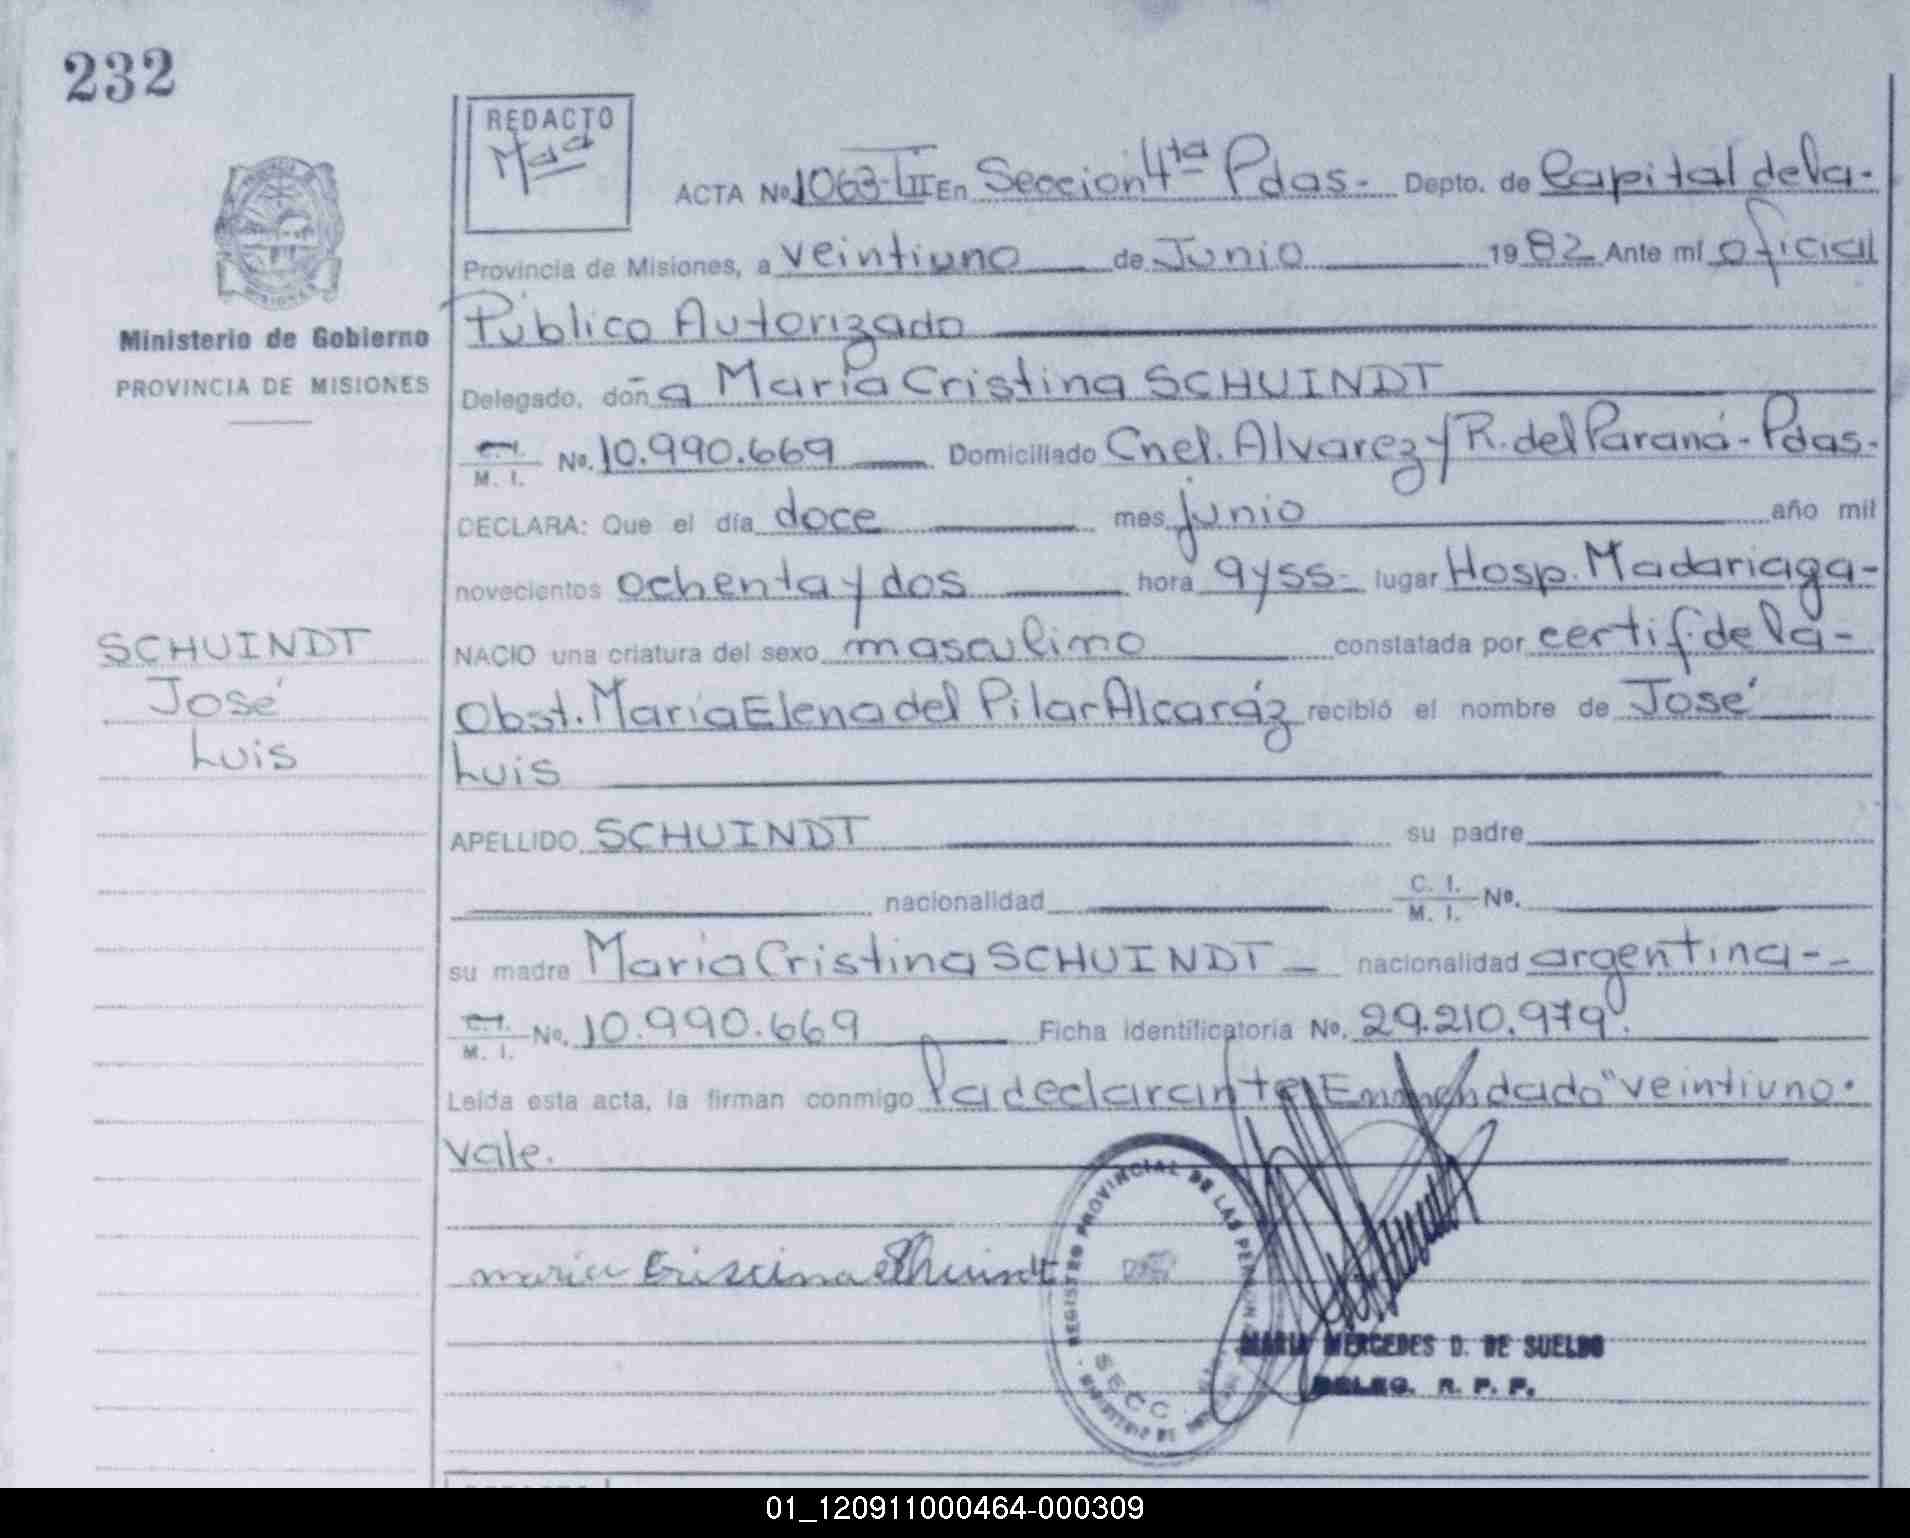 232
REDACTO
Mªª
ACTA No. 1063-TII En Seccion 4ta Pdas.- Depto. de Capital de la-
Provincia de Misiones, a veintiuno de Junio 1982 Ante mí oficial
Ministerio de Gobierno
Público Autorizado
PROVINCIA DE MISIONES
Delegado, doña María Cristina SCHUINDT
C.I. M. I. No. 10.990.669 Domiciliado Cnel. Alvarez y R. del Paraná- Pdas-
DECLARA: Que el día doce mes junio año mil
novecientos ochenta y dos hora 9y55- lugar Hosp. Madariaga-
SCHUINDT
NACIO una criatura del sexo masculino constatada por certif. de la-
José
Obst. María Elena del Pilar Alcaráz recibió el nombre de José
Luis
Luis
APELLIDO SCHUINDT su padre
nacionalidad C. I. M. I. No.
su madre María Cristina SCHUINDT nacionalidad argentina--
C.I. M. I. No. 10.990.669 Ficha identificatoria No. 29.210.979.
Leída esta acta, la firman conmigo la declarante, Enmendado "veintiuno"
vale.
maria Cristina Schuindt
REGISTRO PROVINCIAL DE LAS PERSONAS
SECC.
MARIA MERCEDES D. DE SUELDO
DELEG. R. P. P.
01_120911000464-000309